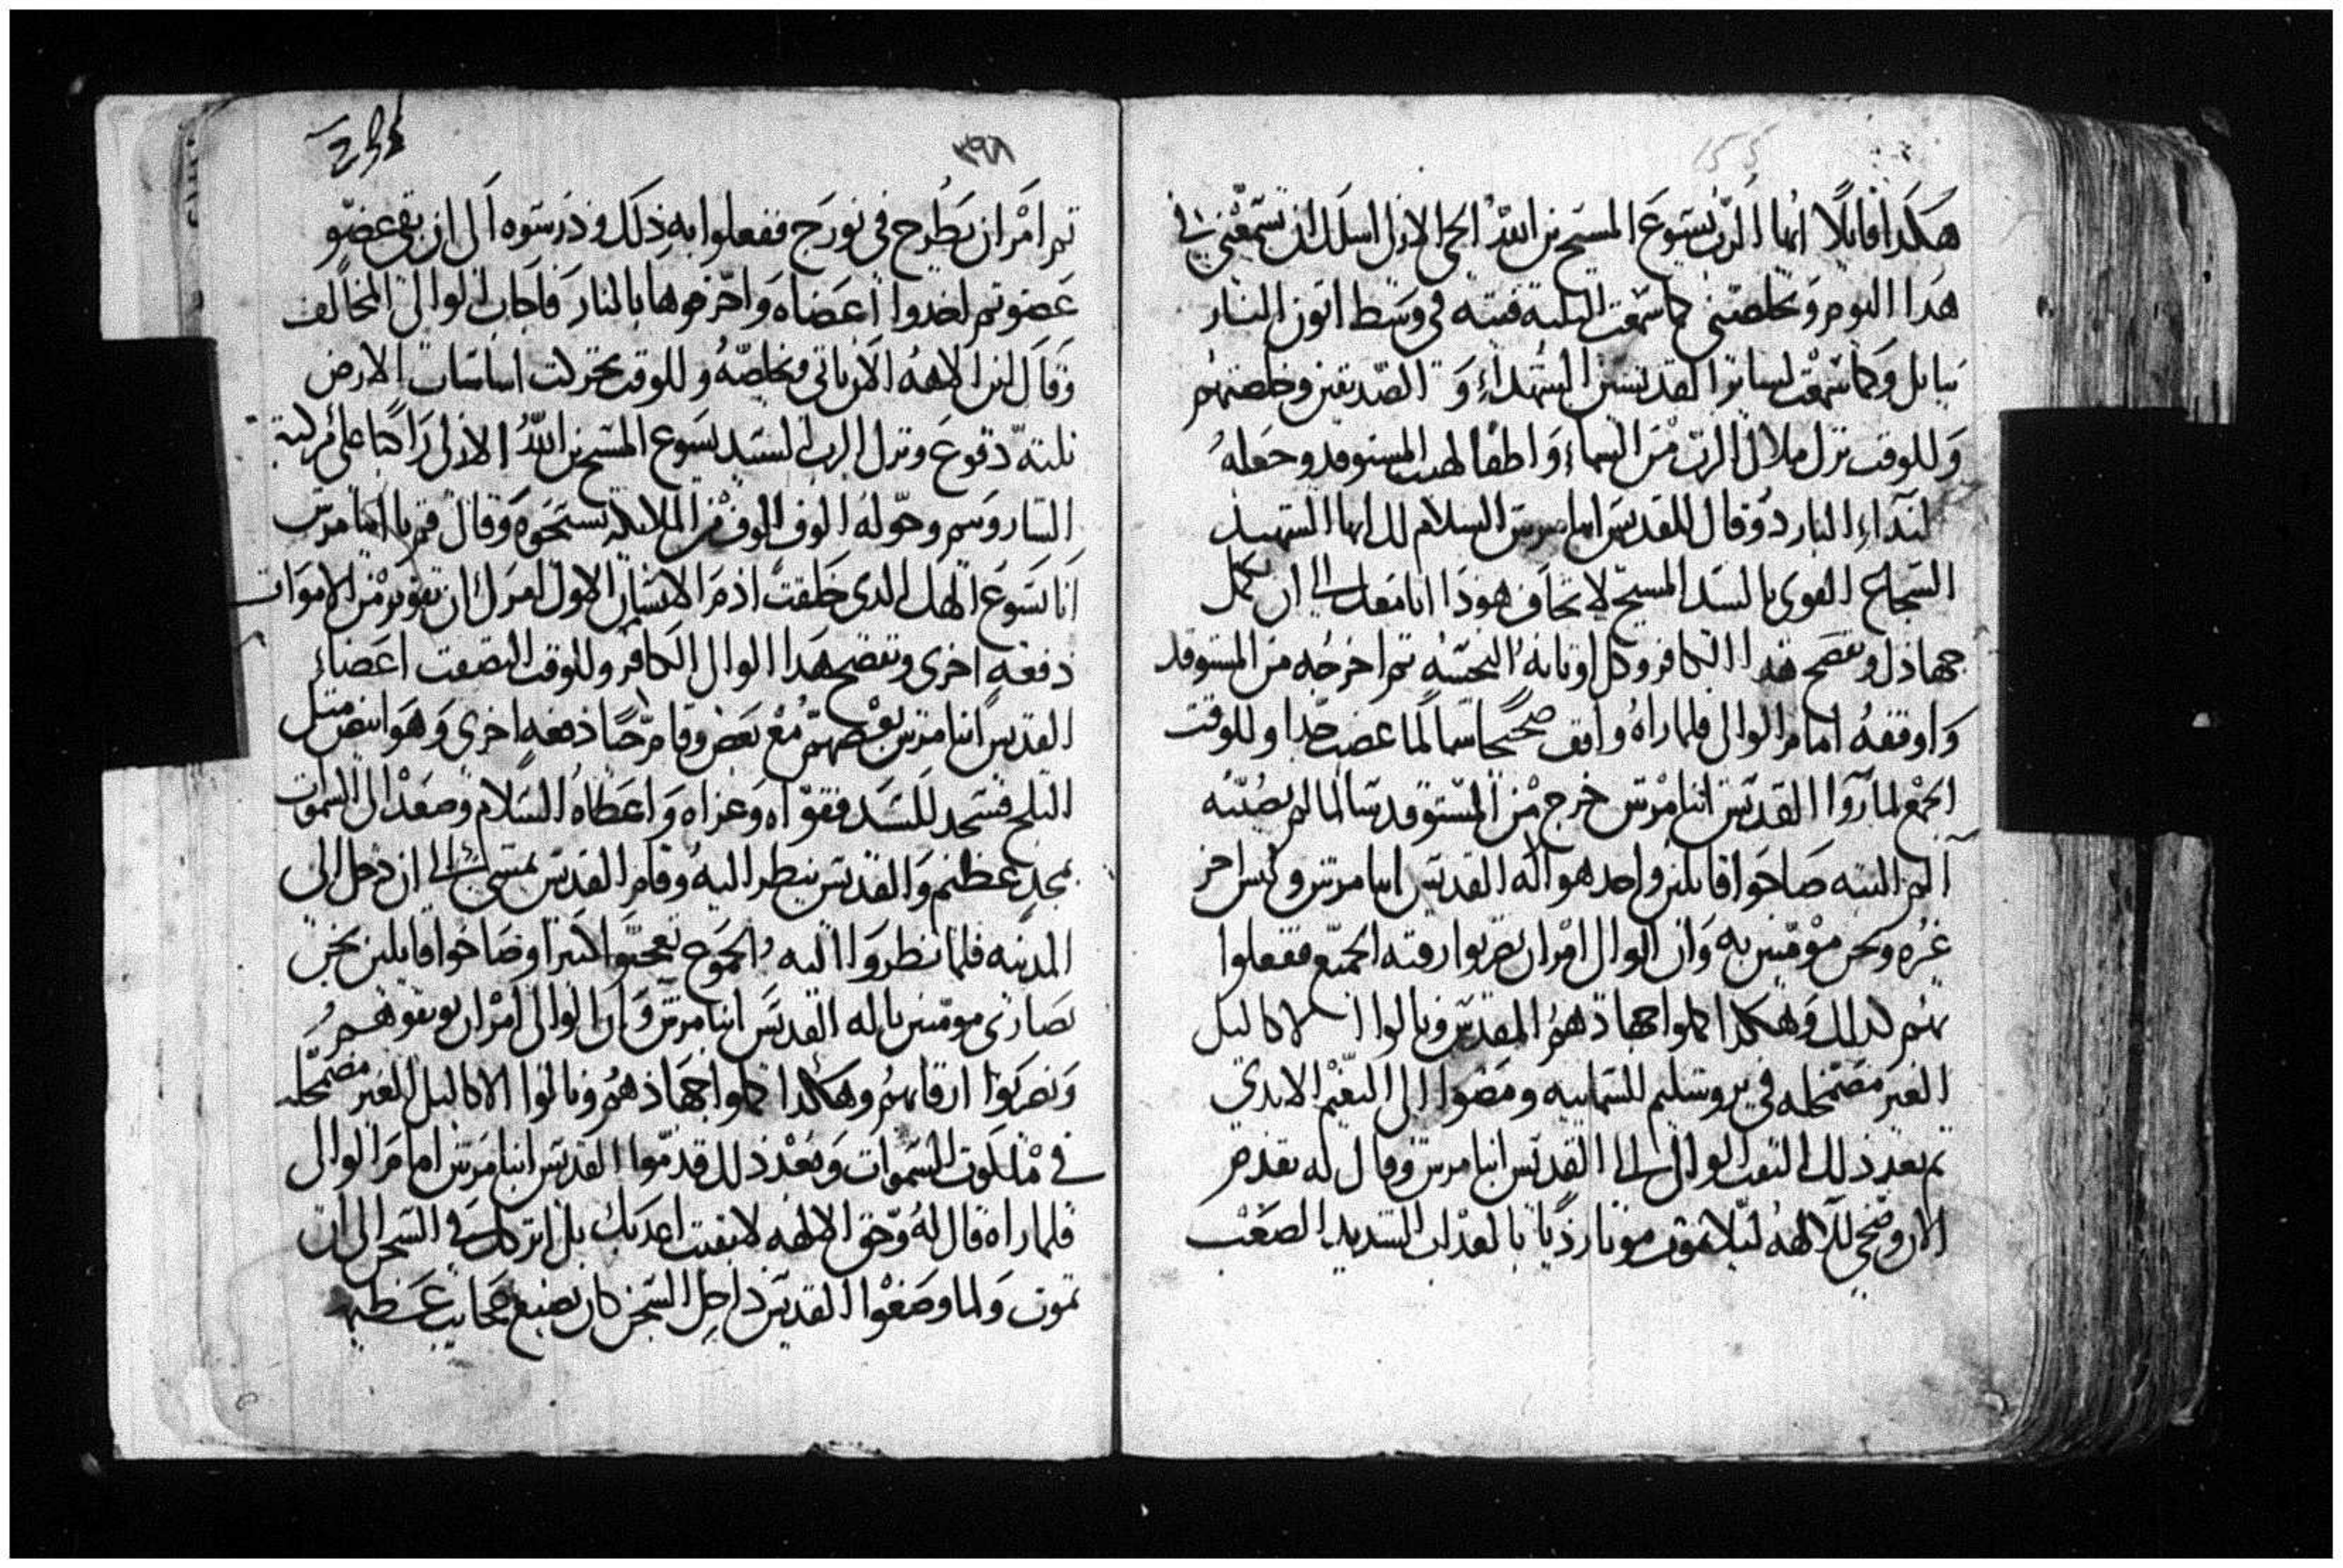 هكدا قايلا ايها الرب يسوع المسيح بن الله الحي الازلي اسلك ان تسمعني في
هدا اليوم وتخلصني كما سمعت التلته فتيه في وسط اتون النار
ببابل وكما سمعت لساير القديسين الشهداء و الصديقين وخلصتهم
وللوقت نزل ملاك الرب من السماء واطفا لهيب المستوقد وجعله
كندآء البارد وقال للقديس انبا مرتس السلام لك ايها الشهيد
الشجاع القوي بالسيد المسيح لا تخاف هودا انا معك الى ان تكمل
جهادك وتفضح هدا الكافر وكل اوتانه النجسه تم اخرجه من المستوقد
واوقفه امام الوالي فلما راه واقف صحيحا سالما غضب جدا وللوقت
الجمع لما راوا القديس انبا مرتس خرج من المستوقد سالما لم يصيبه
الم البته صاحوا قايلين واحد هو اله القديس انبا مرتس وليس اخر
غيره ونحن مومنين به وان الوالي امر ان يضربوا رقبه الجميع ففعلوا
بهم كدلك وهكدا كملوا جهادهم المقدس ونالوا الاكاليل
الغير مضمحله في يروشليم السماييه ومضوا الى النعيم الابدي
تم بعد دلك التفت الوالي الى القديس انبا مرتس وقال له تقدم
الان وضحي للالهه ليلا تموت موتا رديا بالعداب الشديد الصعب
٣٩٨
تم امر ان يطرح في نورج ففعلوا به دلك ودرسوه الى ان بقي عضو
عضو تم اخدوا اعضاه واحرقوها بالنار فاجاب الوالي المخالف
وقال اين الاهه الان ياتي ويخلصه وللوقت تحركت اساسات الارض
تلته دفوع ونزل الرب السيد يسوع المسيح بن الله الازلي راكبا على مركبة
الشاروبيم وحوله الوف الوف من الملايكه يسبحوه وقال قم يا انبا مرتس
انا يسوع الهك الدي خلقت ادم الانسان الاول امرك ان تقوم من الاموات
دفعه اخرى وتفضح هدا الوالي الكافر وللوقت التصقت اعضاء
القديس انبا مرتس بعضهم مع بعض وقام حيا دفعه اخرى وهو ابيض متل
التلج فسجد للسيد فقواه وعزاه واعطاه السلام وصعد الى السموات
بمجد عظيم والقديس ينظر اليه وقام القديس يمشي الى ان دخل الى
المدينه فلما نظروا اليه الجموع تعجبوا كتيرا وصاحوا قايلين نحن
نصارى مومنين باله القديس انبا مرتس وان الوالي امر ان يوتقوهم
ويضربوا ارقابهم وهكدا كملوا جهادهم ونالوا الاكاليل الغير مضمحله
في ملكوت السموات وبعد دلك قدموا القديس انبا مرتس امام الوالي
فلما راه قال له وحق الالهه لا بقيت اعدبك بل اتركك في السجن الى ان
تموت ولما وضعوا القديس داخل السجن كان يصنع عجايب عظيمه